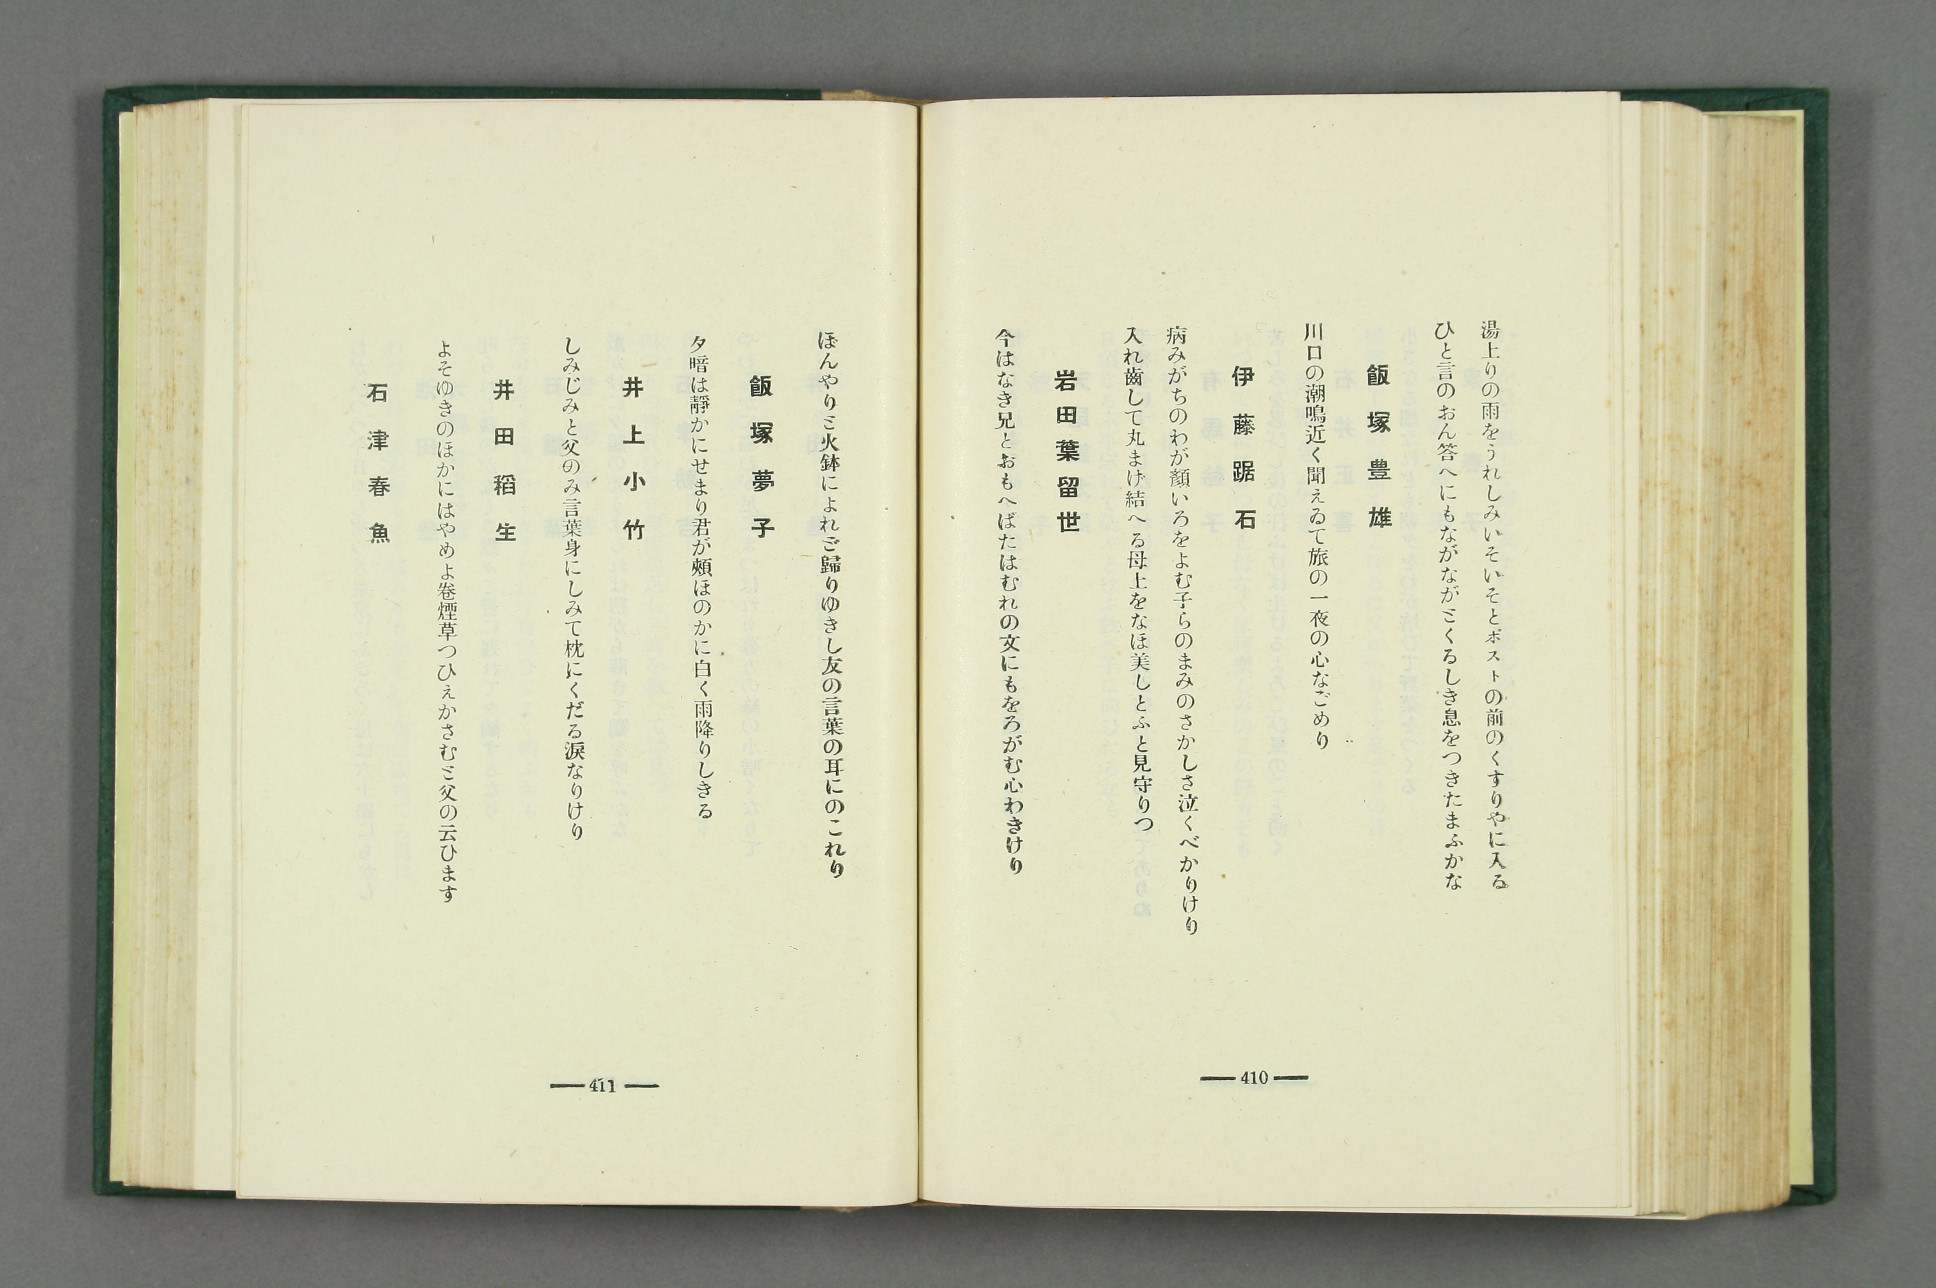 湯上りの雨をうれしみいそいそとポストの前のくすりやに入る
ひと言のおん答へにもながながとくるしき息をつきたまふかな
飯塚豊雄
川口の潮鳴近く聞えゐて旅の一夜の心なごめり
伊藤踞石
病みがちのわが顏いろをよむ子らのまみのさかしさ泣くべかりけり
入れ齒して丸まげ結へる母上をなほ美しとふと見守りつ
岩田葉留世
今はなき兄とおもへばたはむれの文にもをろがむ心わきけり
410
ほんやりと火鉢によれど歸りゆきし友の言葉の耳にのこれり
飯塚夢子
夕暗は靜かにせまり君が頰ほのかに白く雨降りしきる
井上小竹
しみじみと父のみ言葉身にしみて枕にくだる淚なりけり
井田稻生
よそゆきのほかにはやめよ卷煙草つひえかさむと父の云ひます
石津春魚
411